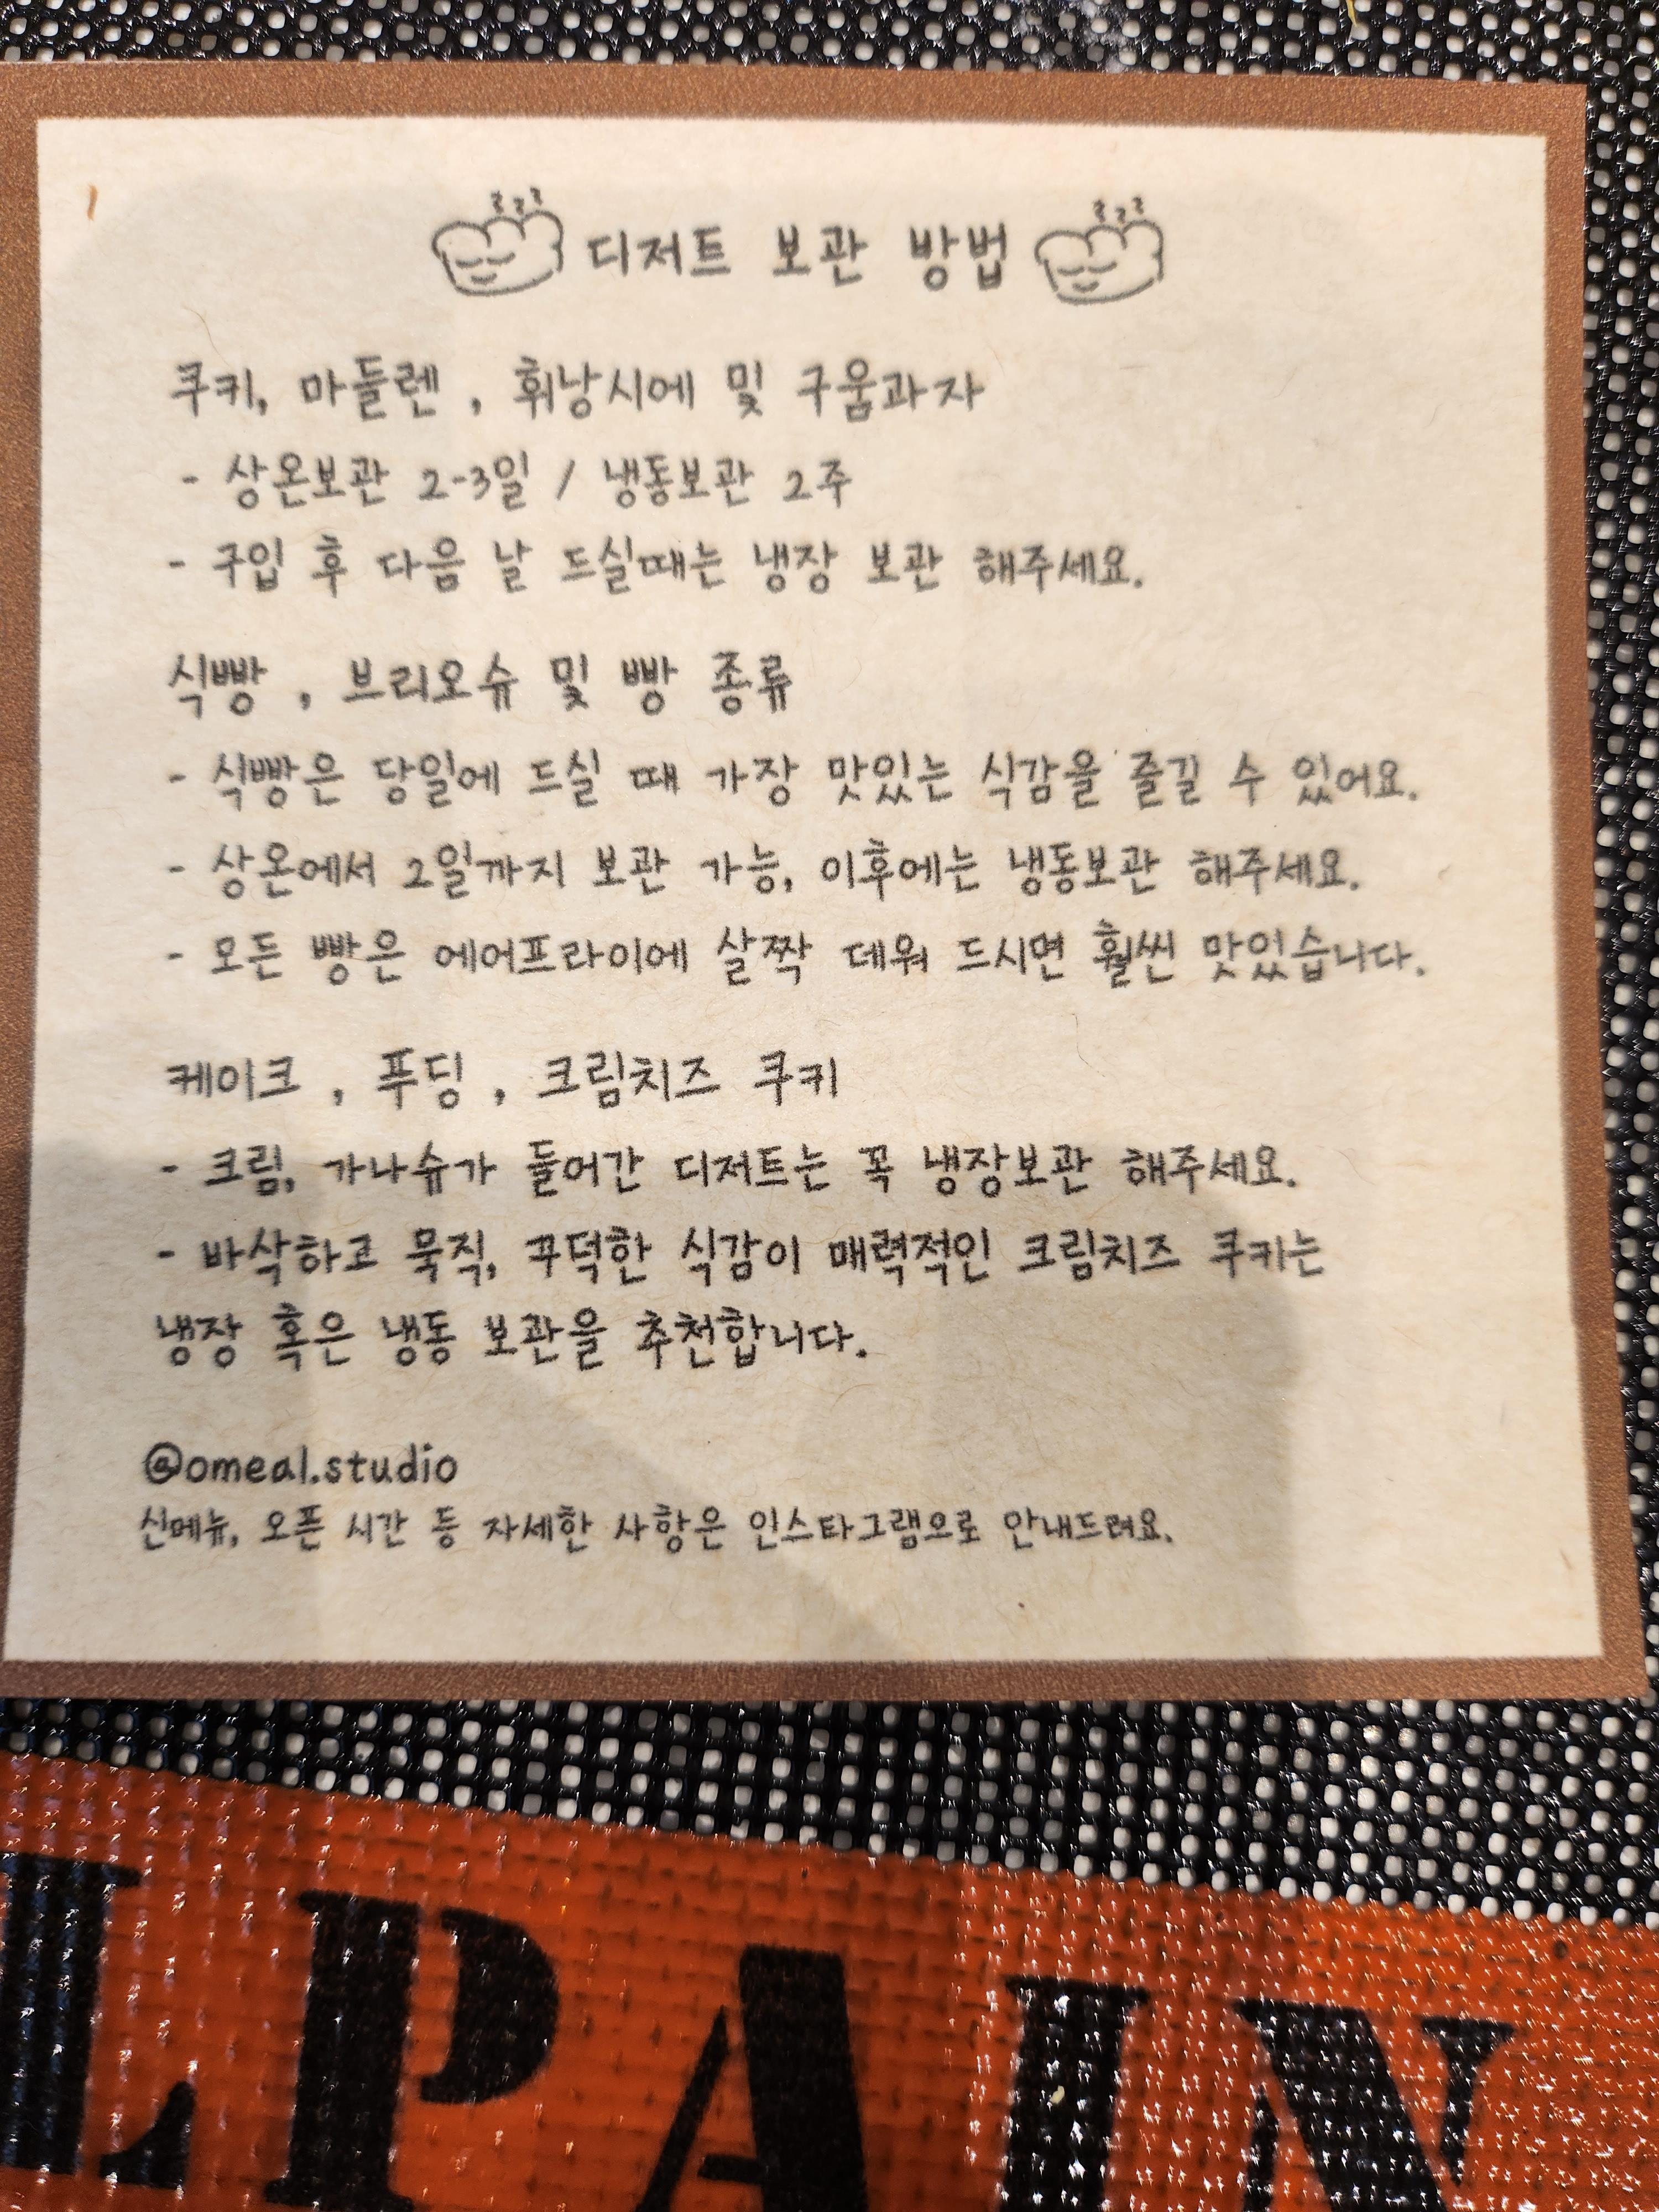 디저트 보관 방법
쿠키, 마들렌 , 휘낭시에 및 구움과자
- 상온보관 2-3일 / 냉동보관 2주
- 구입 후 다음 날 드실때는 냉장 보관 해주세요.
식빵 , 브리오슈 및 빵 종류
- 식빵은 당일에 드실 때 가장 맛있는 식감을 즐길 수 있어요.
- 상온에서 2일까지 보관 가능, 이후에는 냉동보관 해주세요.
- 모든 빵은 에어프라이에 살짝 데워 드시면 훨씬 맛있습니다.
케이크 , 푸딩 , 크림치즈 쿠키
- 크림, 가나슈가 들어간 디저트는 꼭 냉장보관 해주세요.
- 바삭하고 묵직, 꾸덕한 식감이 매력적인 크림치즈 쿠키는
냉장 혹은 냉동 보관을 추천합니다.
@omeal.studio
신메뉴, 오픈 시간 등 자세한 사항은 인스타그램으로 안내드려요.
LPAIN